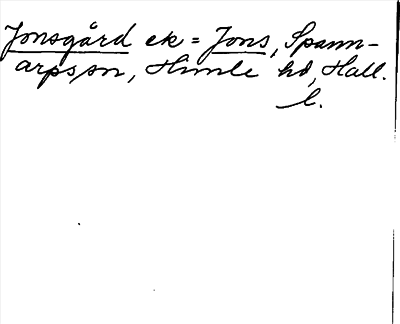 Jonsgård ek = Jons, Spann-
arps sn, Himle hd, Hall.
l.